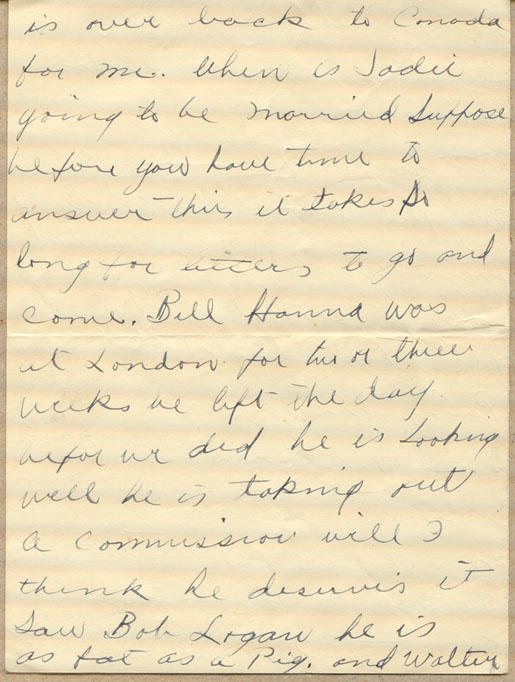 is over back to Canada
for me. When is Sadie
going to be married Suppose
before you have time to
answer this it takes so
long for letters to go and
come. Bill Hanna was
at London for two or three
weeks he left the day
befor we did he is Looking
well he is taking out
a commission well I
think he deserves it
Saw Bob Logan he is
as fat as a Pig. and Walter